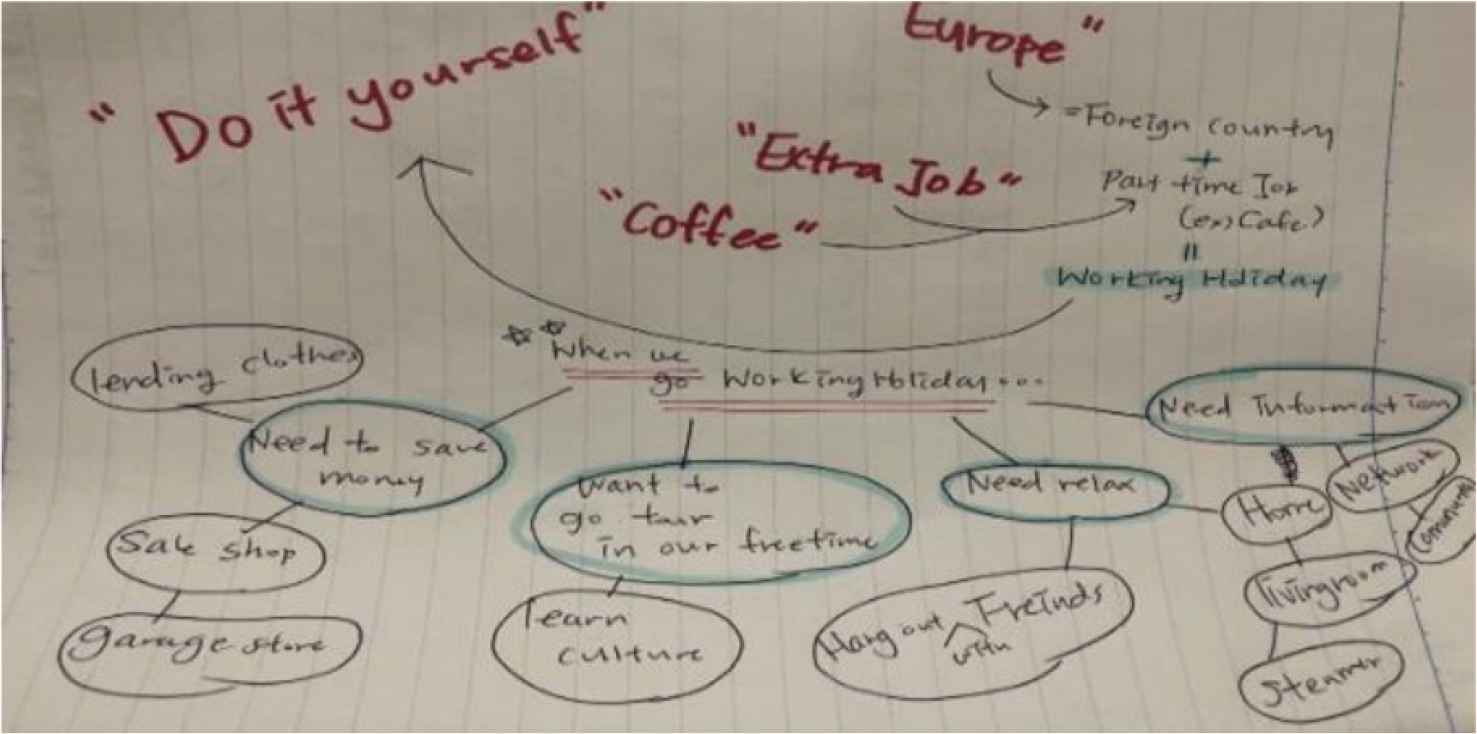 "Do it yourself"
Europe"
= Foreign country
+
"Extra Job"
Part time Job
(ex) Cafe)
"Coffee"
=
Working Holiday
When we
go Working Holiday...
lending clothes
Need to save
money
Sale shop
garage store
Want to
go tour
in our freetime
learn
culture
Need relax
Hang out with Freinds
Need Information
Network
Community
Home
livingroom